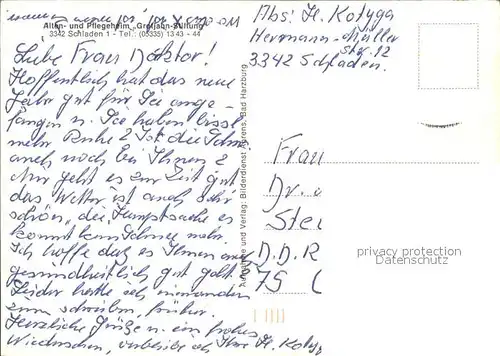 Alten- und Pflegeheim „Grotjahn-Stiftung"
3342 Schladen 1 - Tel.: (05335) 13 43 - 44
Liebe Frau Doktor!
Hoffentlich hat das neue
Jahr gut für Sie ange-
fangen u. Sie haben bissl
mehr Ruhe? Ist die Schw.
auch noch bei Ihnen?
Mir geht es zur Zeit gut
das Wetter ist auch sehr
schön, die Hauptsache es
kommt kein Schnee mehr.
Ich hoffe daß es Ihnen auch
gesundheitlich gut geht.
Leider hatte ich niemanden
zum schreiben, früher.
Herzliche Grüße u. ein frohes
Wiedersehen, verbleibe ich Ihre H. Kotyga
Abs: H. Kotyga
Herrmann-Müller
Str. 12
3342 Schladen.
Aufnahme und Verlag: Bilderdienst Ahrens, Bad Harzburg
Frau
Dr.
D.D.R
privacy protection
Datenschutz